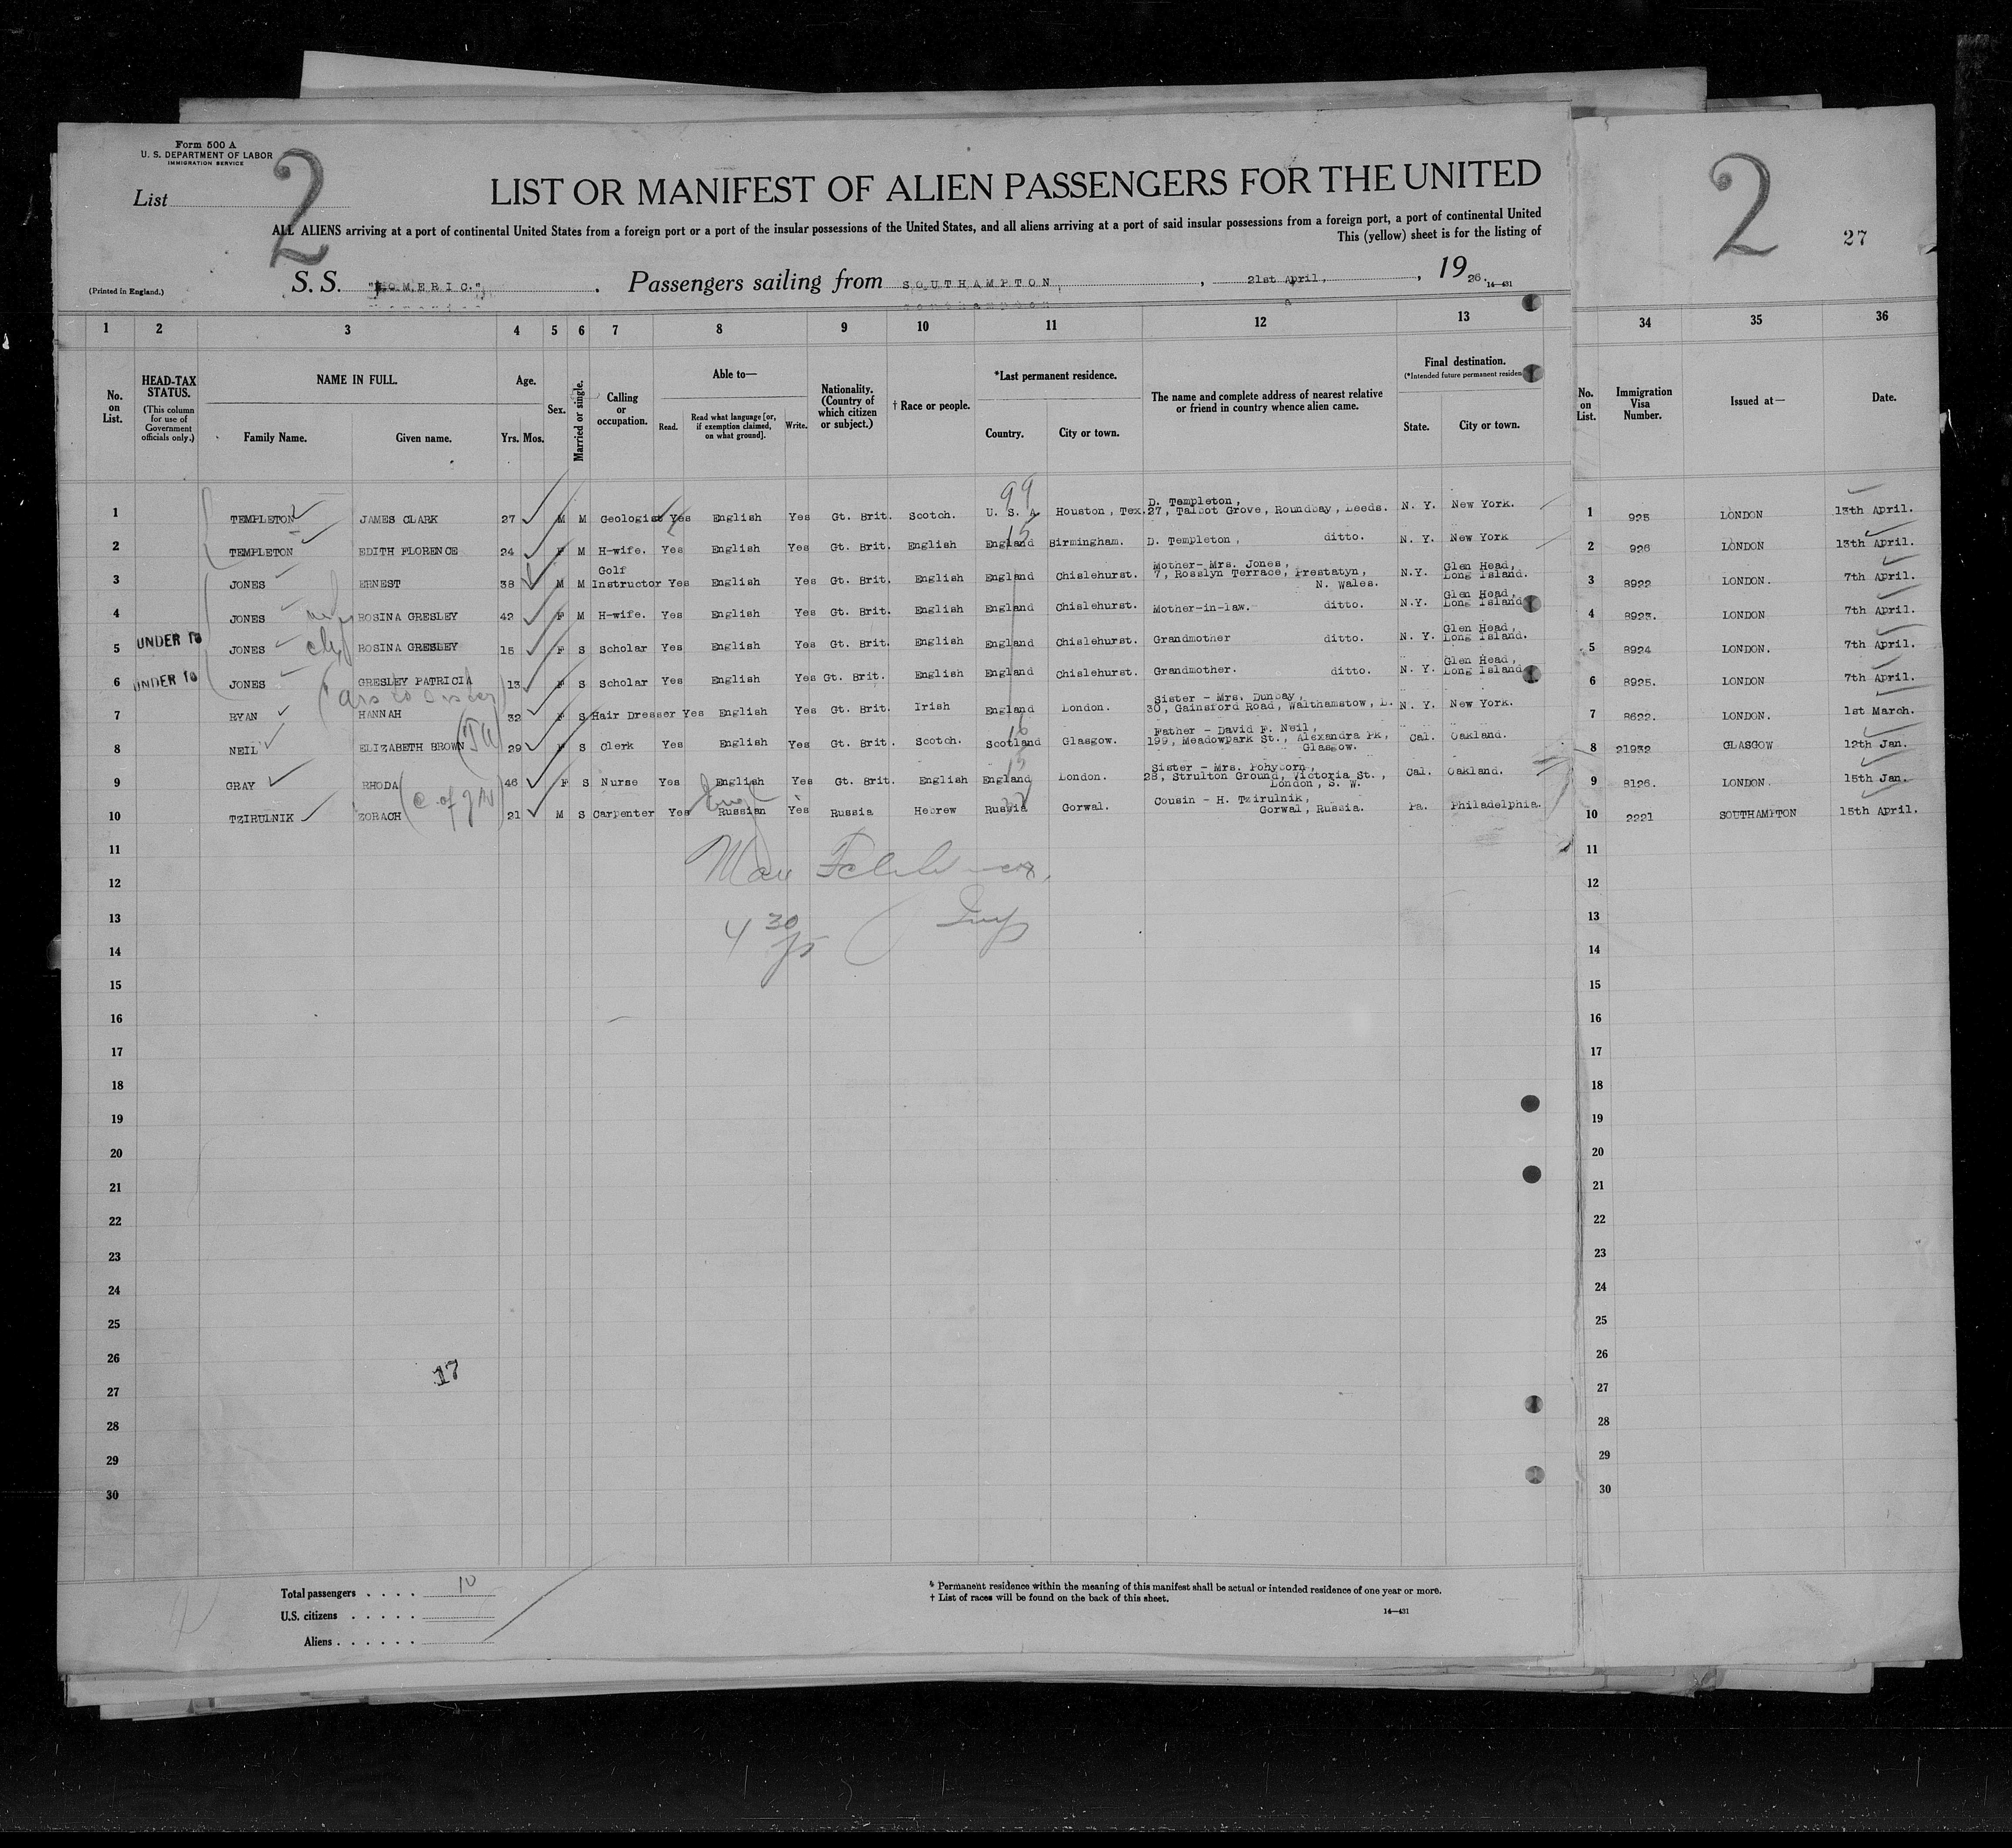 Form 500 A
U. S. DEPARTMENT OF LABOR
IMMIGRATION SERVICE
List 2
LIST OR MANIFEST OF ALIEN PASSENGERS FOR THE UNITED
ALL ALIENS arriving at a port of continental United States from a foreign port or a port of the insular possessions of the United States, and all aliens arriving at a port of said insular possessions from a foreign port, a port of continental United
This (yellow) sheet is for the listing of
(Printed in England.)
S. S. "HOMERIC." Passengers sailing from SOUTHAMPTON, 21st April, 1926.
14—431
2
27
1 2 3 4 5 6 7 8 9 10 11 12 13 34 35 36
No. on List.
HEAD-TAX STATUS.
(This column for use of Government officials only.)
NAME IN FULL.
Family Name. Given name.
Age.
Yrs. Mos.
Sex.
Married or single.
Calling or occupation.
Able to—
Read. Read what language [or, if exemption claimed, on what ground]. Write.
Nationality. (Country of which citizen or subject.)
† Race or people.
*Last permanent residence.
Country. City or town.
The name and complete address of nearest relative or friend in country whence alien came.
Final destination.
(*Intended future permanent residen
State. City or town.
No. on List.
Immigration Visa Number.
Issued at—
Date.
1 TEMPLETON JAMES CLARK 27 M M Geologist Yes English Yes Gt. Brit. Scotch. 99 U. S. A Houston, Tex. D. Templeton, 27, Talbot Grove, Roundbay, Leeds. N. Y. New York. 1 925 LONDON 13th April.
2 TEMPLETON EDITH FLORENCE 24 F M H-wife. Yes English Yes Gt. Brit. English 15 England Birmingham. D. Templeton, ditto. N. Y. New York 2 926 LONDON 13th April.
3 JONES ERNEST 38 M M Golf Instructor Yes English Yes Gt. Brit. English England Chislehurst. Mother- Mrs. Jones, 7, Rosslyn Terrace, Prestatyn, N. Wales. N.Y. Glen Head, Long Island. 3 8922 LONDON. 7th April.
4 JONES ROSINA GRESLEY 42 F M H-wife. Yes English Yes Gt. Brit. English England Chislehurst. Mother-in-law. ditto. N.Y. Glen Head, Long Island 4 8923. LONDON 7th April.
5 UNDER 16 JONES ROSINA GRESLEY 15 F S Scholar Yes English Yes Gt. Brit. English England Chislehurst. Grandmother ditto. N. Y. Glen Head, Long Island. 5 8924 LONDON. 7th April.
6 UNDER 16 JONES GRESLEY PATRICIA 13 F S Scholar Yes English Yes Gt. Brit. English England Chislehurst. Grandmother. ditto. N. Y. Glen Head, Long Island 6 8925. LONDON 7th April.
7 RYAN HANNAH 32 F S Hair Dresser Yes English Yes Gt. Brit. Irish England London. Sister - Mrs. Dunbay, 30, Gainsford Road, Walthamstow, L. N. Y. New York. 7 8622. LONDON. 1st March.
8 NEIL ELIZABETH BROWN 29 F S Clerk Yes English Yes Gt. Brit. Scotch. 16 Scotland Glasgow. Father - David F. Neil, 199, Meadowpark St., Alexandra Pk, Glasgow. Cal. Oakland. 8 21932 GLASGOW 12th Jan.
9 GRAY RHODA 46 F S Nurse Yes English Yes Gt. Brit. English 15 England London. Sister - Mrs. Pohyborn, 28, Strulton Ground, Victoria St., London, S. W. Cal. Oakland. 9 8126. LONDON. 15th Jan.
10 TZIRULNIK ZORACH 21 M S Carpenter Yes Russian Yes Russia Hebrew Russia Gorwal. Cousin - H. Tzirulnik, Gorwal, Russia. Pa. Philadelphia. 10 2221 SOUTHAMPTON 15th April.
11 11
12 12
13 4 30 13
14 14
15 15
16 16
17 17
18 18
19 19
20 20
21 21
22 22
23 23
24 24
25 25
26 26
17
27 27
28 28
29 29
30 30
Total passengers . . . . 10
U.S. citizens . . . . .
Aliens . . . . . .
* Permanent residence within the meaning of this manifest shall be actual or intended residence of one year or more.
† List of races will be found on the back of this sheet.
14—431